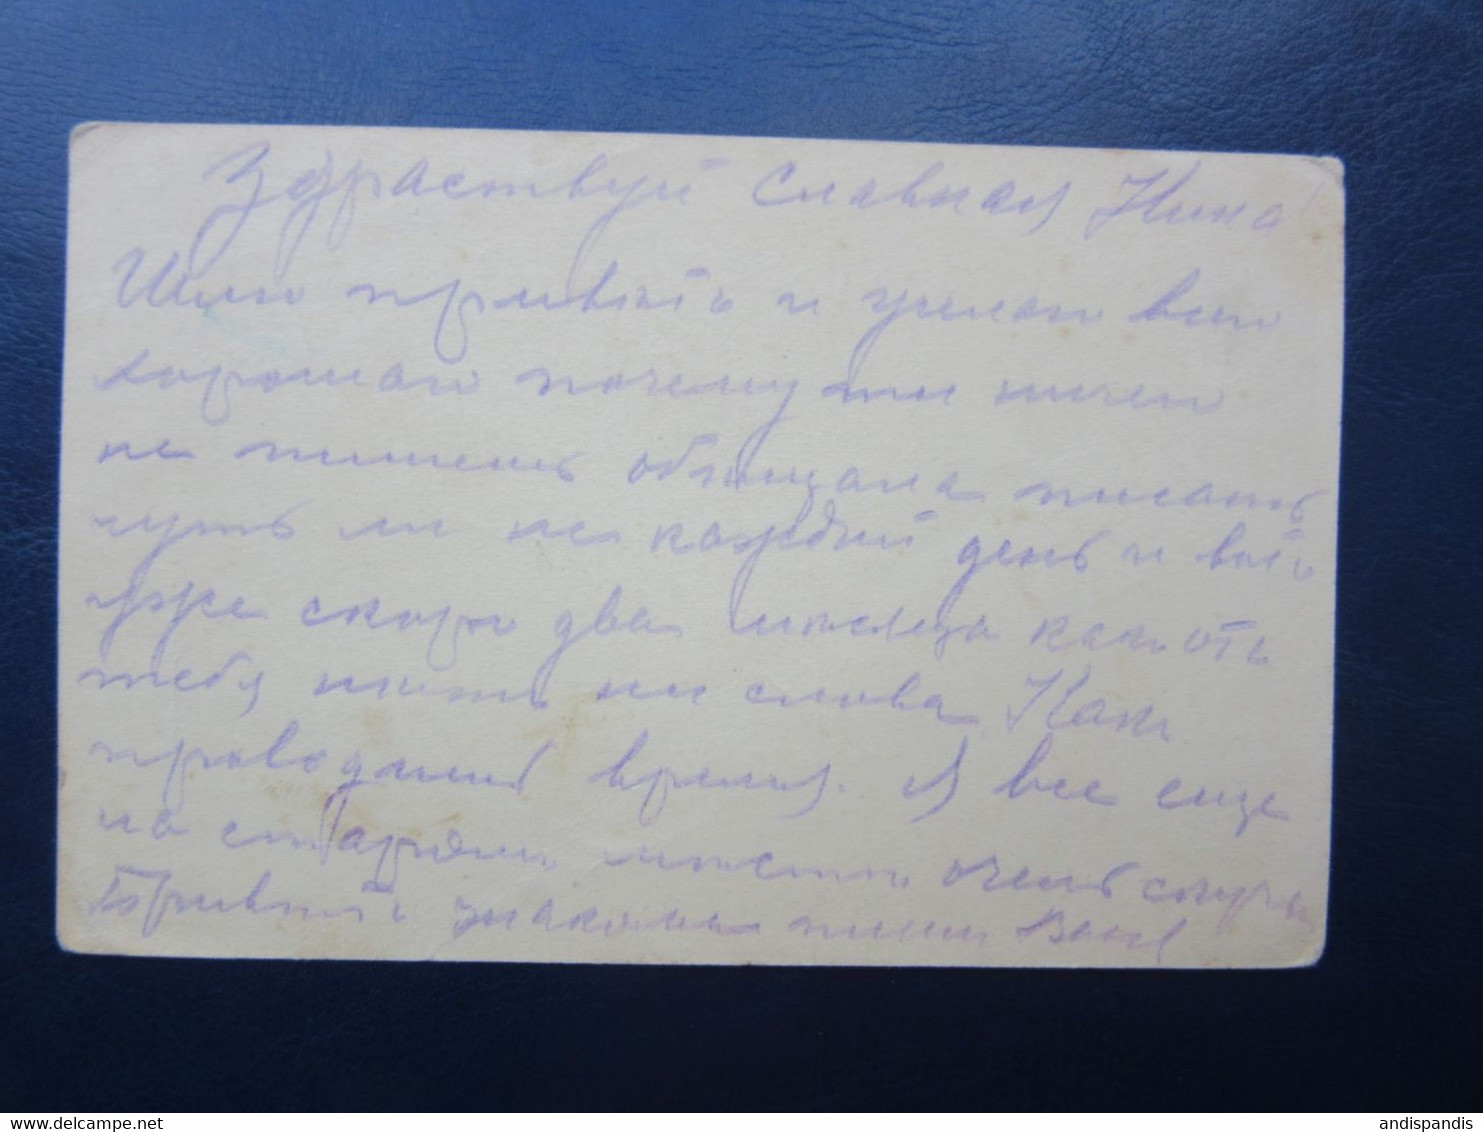 Здраствуй Славная Нина
Шлю привѣтъ и желаю всего
хорошаго почему ты ничего
не пишешь обѣщала писать
чуть ли не каждый день и вотъ
уже скоро два мѣсяца какъ отъ
тебя нѣтъ ни слова Какъ
проводишь время. Я все еще
на старомъ мѣстѣ очень скучн
Привѣтъ знакомым пиши Вася
www.delcampe.net
andispandis